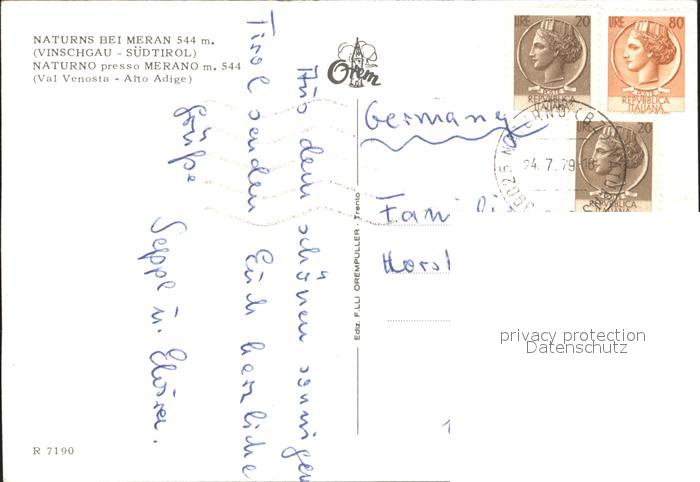 NATURNS BEI MERAN 544 m.
(VINSCHGAU - SÜDTIROL)
NATURNO presso MERANO m. 544
(Val Venosta - Alto Adige)
Orem
LIRE 20
REPVBBLICA
ITALIANA
LIRE 80
REPVBBLICA
ITALIANA
20
24.7.79
Aus dem schönen sonnigen
Tirol senden Euch herzliche
Grüße
Seppl u.
Germany
Horst
Ediz. F.LLI OREMPULLER - Trento
privacy protection
Datenschutz
R 7190